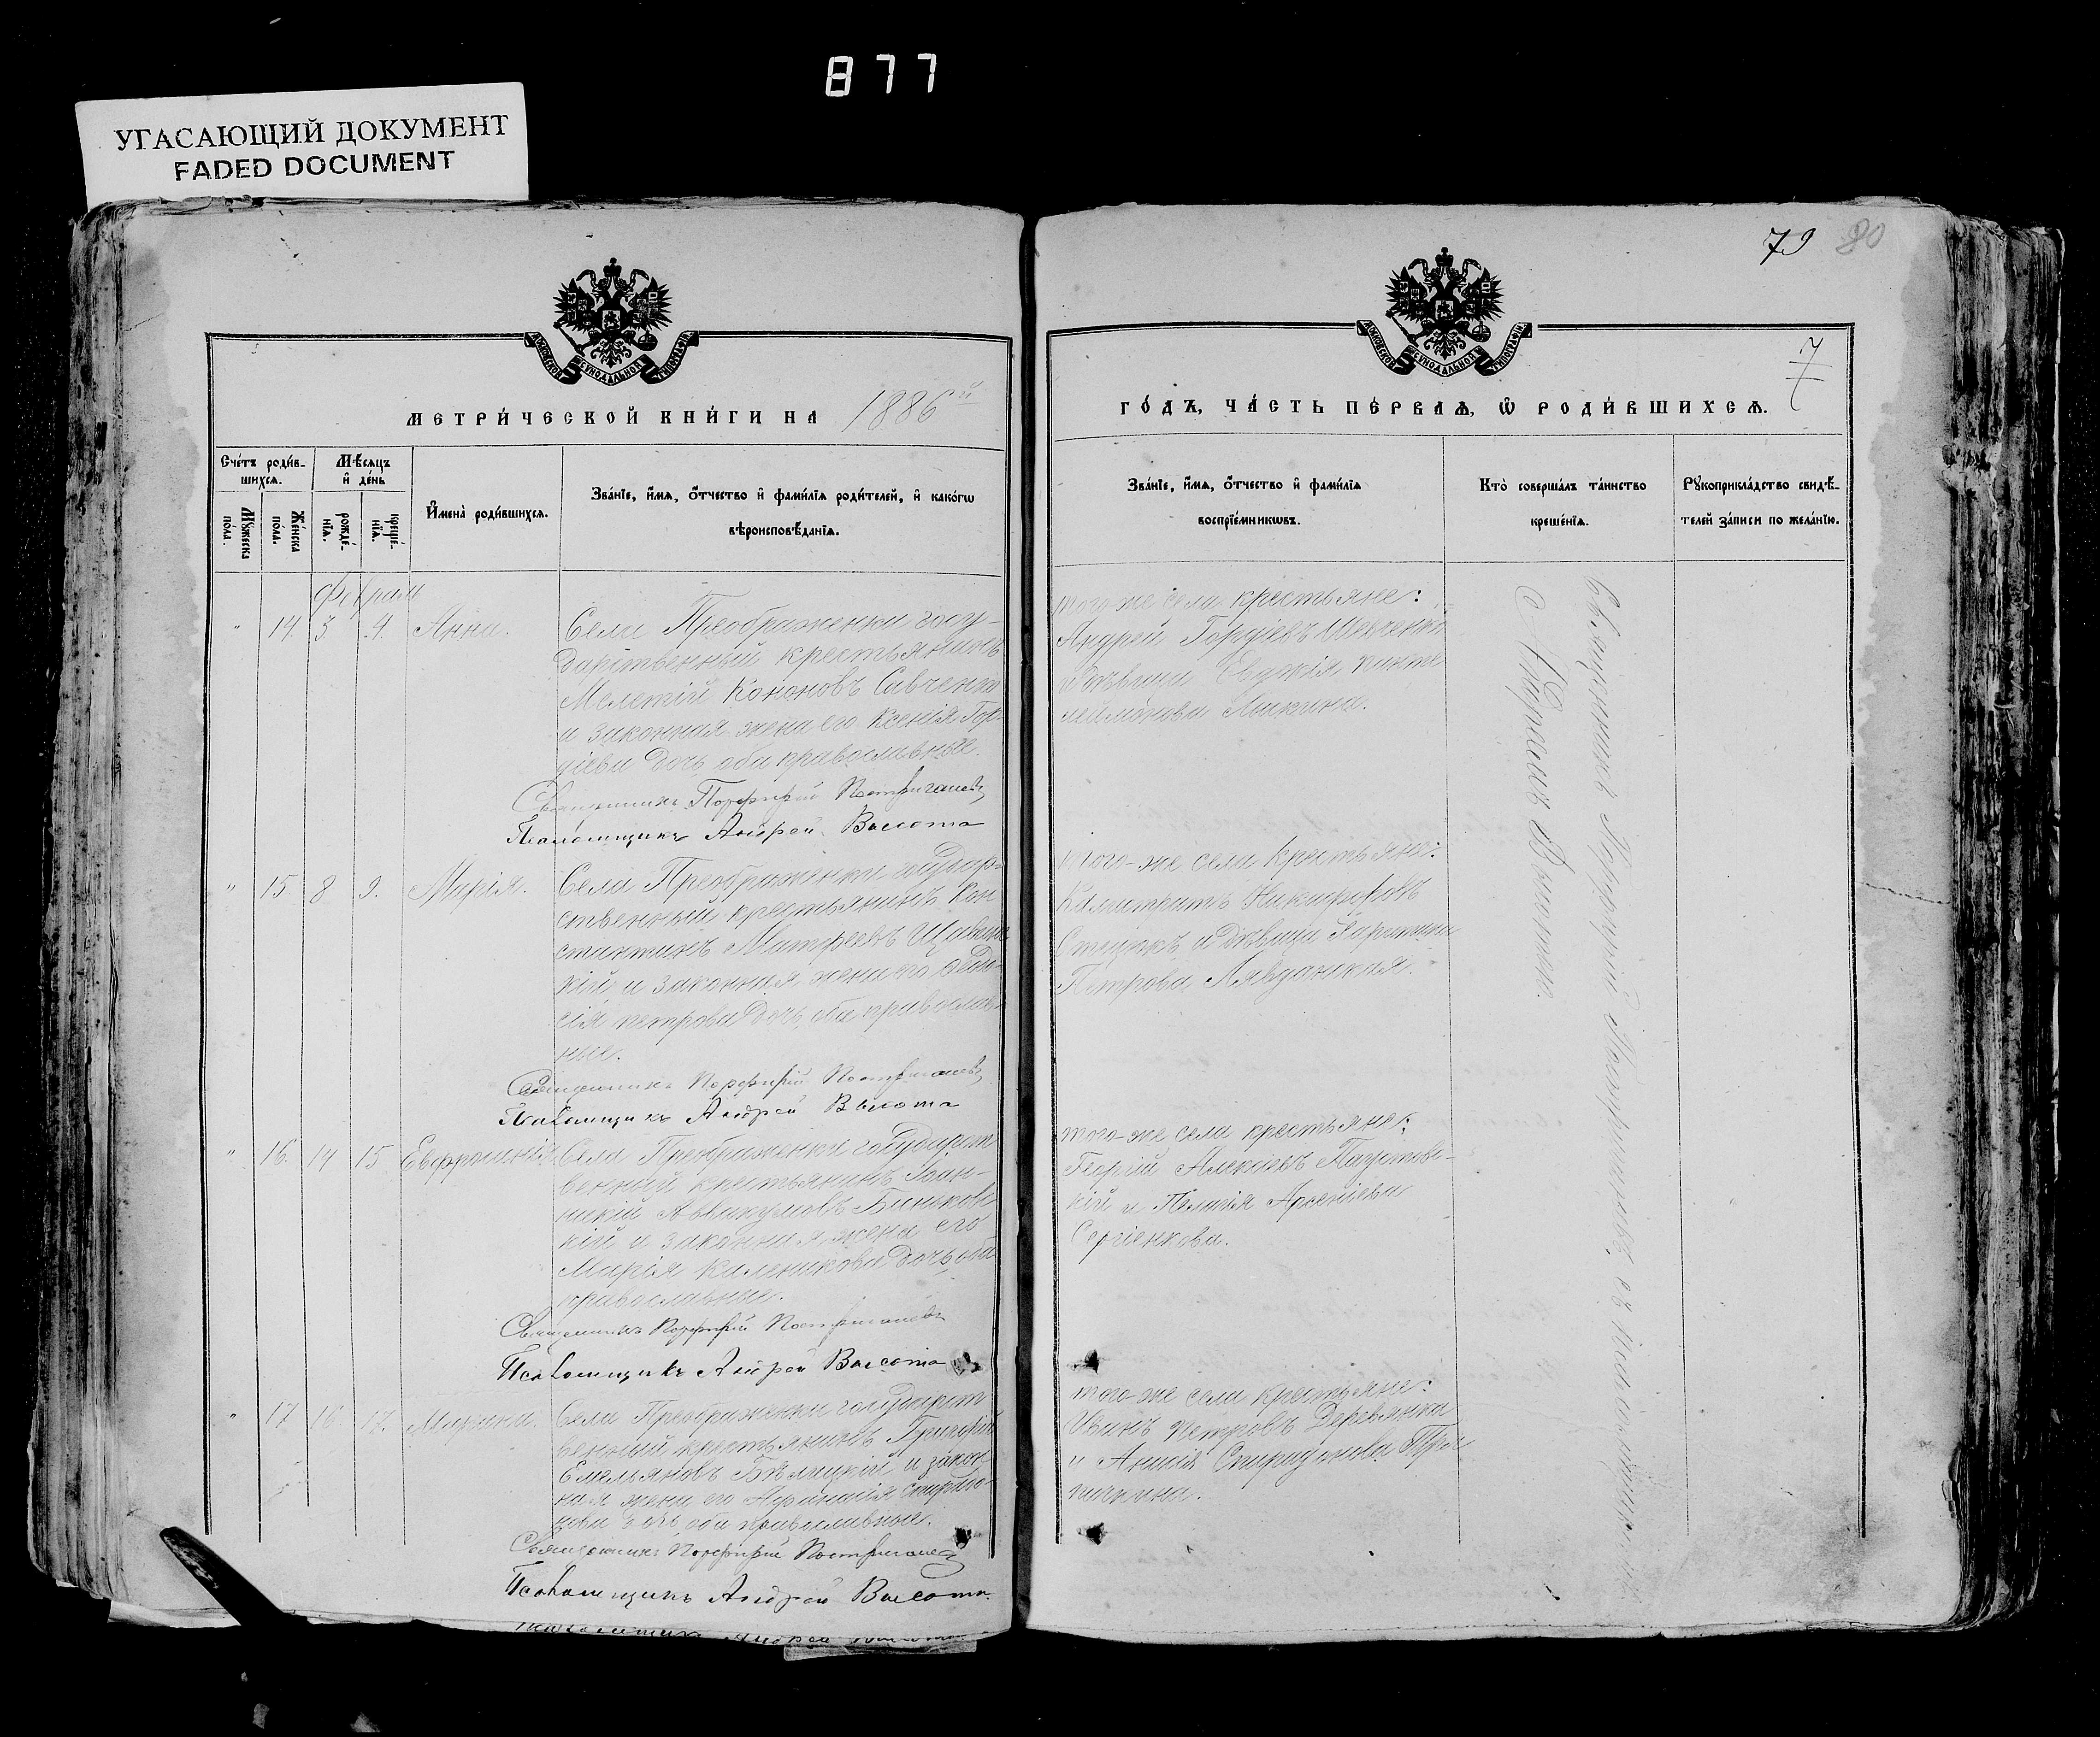 877
УГАСАЮЩИЙ ДОКУМЕНТ
FADED DOCUMENT
79 80
7
МЕТРИ́ЧЕСКОЙ КНИ́ГИ НА 1886й
ГО́ДЪ, ЧА́СТЬ ПЕ́РВАѦ, Ѡ РОДИ́ВШИХСѦ.
Сче́тъ роди́в-
шихсѧ.
Мꙋ́жеска по́ла.
Же́нска по́ла.
Мѣ́сѧцъ
и҆ де́нь
рожде́-
нїѧ.
креще́-
нїѧ.
И҆мена̀ роди́вшихсѧ.
Зва́нїе, и҆́мѧ, ѻ҆́тчество и҆ фами́лїѧ роди́телей, и҆ како́гѡ
вѣроисповѣ́данїѧ.
Зва́нїе, и҆́мѧ, ѻ҆́тчество и҆ фами́лїѧ
воспрїе́мникѡвъ.
Кто̀ соверша́лъ та́инство
креще́нїѧ.
Рꙋкоприкла́дство свидѣ́-
телей за́писи по жела́нїю.
14 3 4. Анна.
Села Преображенки госу-
дарственный крестьянинъ
Мелетій Кононовъ Савченко
и законная жена его Ксенія Гор-
діева дочь, оба православные.
Священникъ Порфирій
Псаломщикъ Андрей Высота
того-же села крестьяне:
Андрей Гордіевъ Шевченко
и дѣвица Евдокія Панте
леймонова
" 15 8 9. Марія.
Села Преображенки государ-
ственный крестьянинъ Кон
стантинъ Матфеевъ
кій и законная жена его Ѳедо-
сія Петрова дочь, оба православ
ные.
Священникъ Порфирій
Псаломщикъ Андрей Высота
того-же села крестьяне:
Калистратъ Никифоровъ
и дѣвица Харитина
Петрова
" 16. 14 15 Евфросинія.
Села Преображенки государст
венный крестьянинъ Іоан-
никій Аввакумовъ
кій и законная жена его
Марія Каленикова дочь, оба
православные.
Священникъ Порфирій
Псаломщикъ Андрей Высота
того-же села крестьяне:
Георгій Алексіевъ
кій и Пелагія Арсеніева
Сергіенкова.
" 17 16 17.
Села Преображенки государст
венный крестьянинъ Григорій
Емельяновъ Бѣлицкій и закон
ная жена его Спиридо-
нова дочь, оба православные.
Священникъ Порфирій
Псаломщикъ Андрей Высота.
того-же села крестьяне:
Иванъ Петровъ Деревянко
и Спиридонова
Священникъ Порфирій съ псаломщикомъ
Андреемъ Высотою.